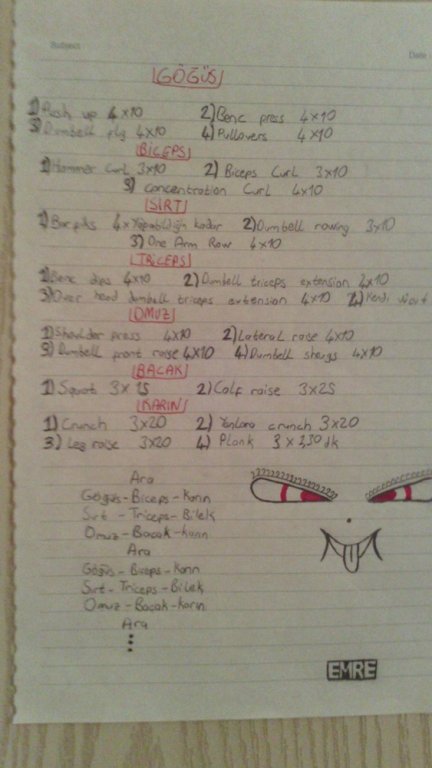 Subject
Date:
GÖĞÜS
1) Push up 4x10 2) Benc press 4x10
3) Dumbell fly 4x10 4) Pullovers 4x10
BİCEPS
1) Hammer Curl 3x10 2) Biceps Curl 3x10
3) Concentration Curl 4x10
SIRT
1) Barfiks 4x Yapabildiğin kadar 2) Dumbell rowing 3x10
3) One Arm Row 4x10
TRİCEPS
1) Benc dips 4x10 2) Dumbell triceps extension 4x10
3) Over head dumbell triceps extension 4x10 4) Kendi
OMUZ
1) Shoulder press 4x10 2) Lateral raise 4x10
3) Dumbell front raise 4x10 4) Dumbell shrugs 4x10
BACAK
1) Squat 3x15 2) Calf raise 3x25
KARIN
1) Crunch 3x20 2) Yanlara crunch 3x20
3) Leg raise 3x20 4) Plank 3x1,30dk
Ara
Göğüs-Biceps-Karın
Sırt-Triceps-Bilek
Omuz-Bacak-Karın
Ara
Göğüs-Biceps-Karın
Sırt-Triceps-Bilek
Omuz-Bacak-Karın
Ara
EMRE